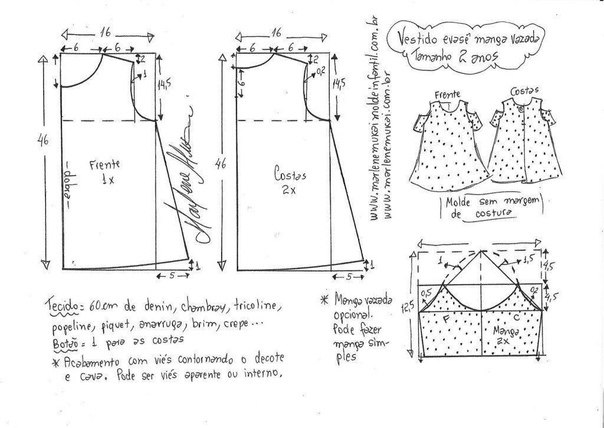 16
6
6
2
1
14,5
46
Frente
1x
-dobra-
1
5
16
6
2
0,2
6
14,5
46
Costas
2x
1
5
Marlene Mukai
www.marlenemukaimoldeinfantil.com.br
www.marlenemukai.com.br
Vestido evasê manga vazada
Tamanho 2 anos
Frente
Costas
Molde sem margem
de costura
1
1,5
4,5
0,5
0,2
4,5
12,5
F
C
Manga
2x
Tecido = 60 cm de denin, chambray, tricoline,
popeline, piquet, anarruga, brim, crepe...
Botão = 1 para as costas
* Acabamento com viés contornando o decote
e cava. Pode ser viés aparente ou interno.
* Manga vazada
opcional.
Pode fazer
manga sim-
ples